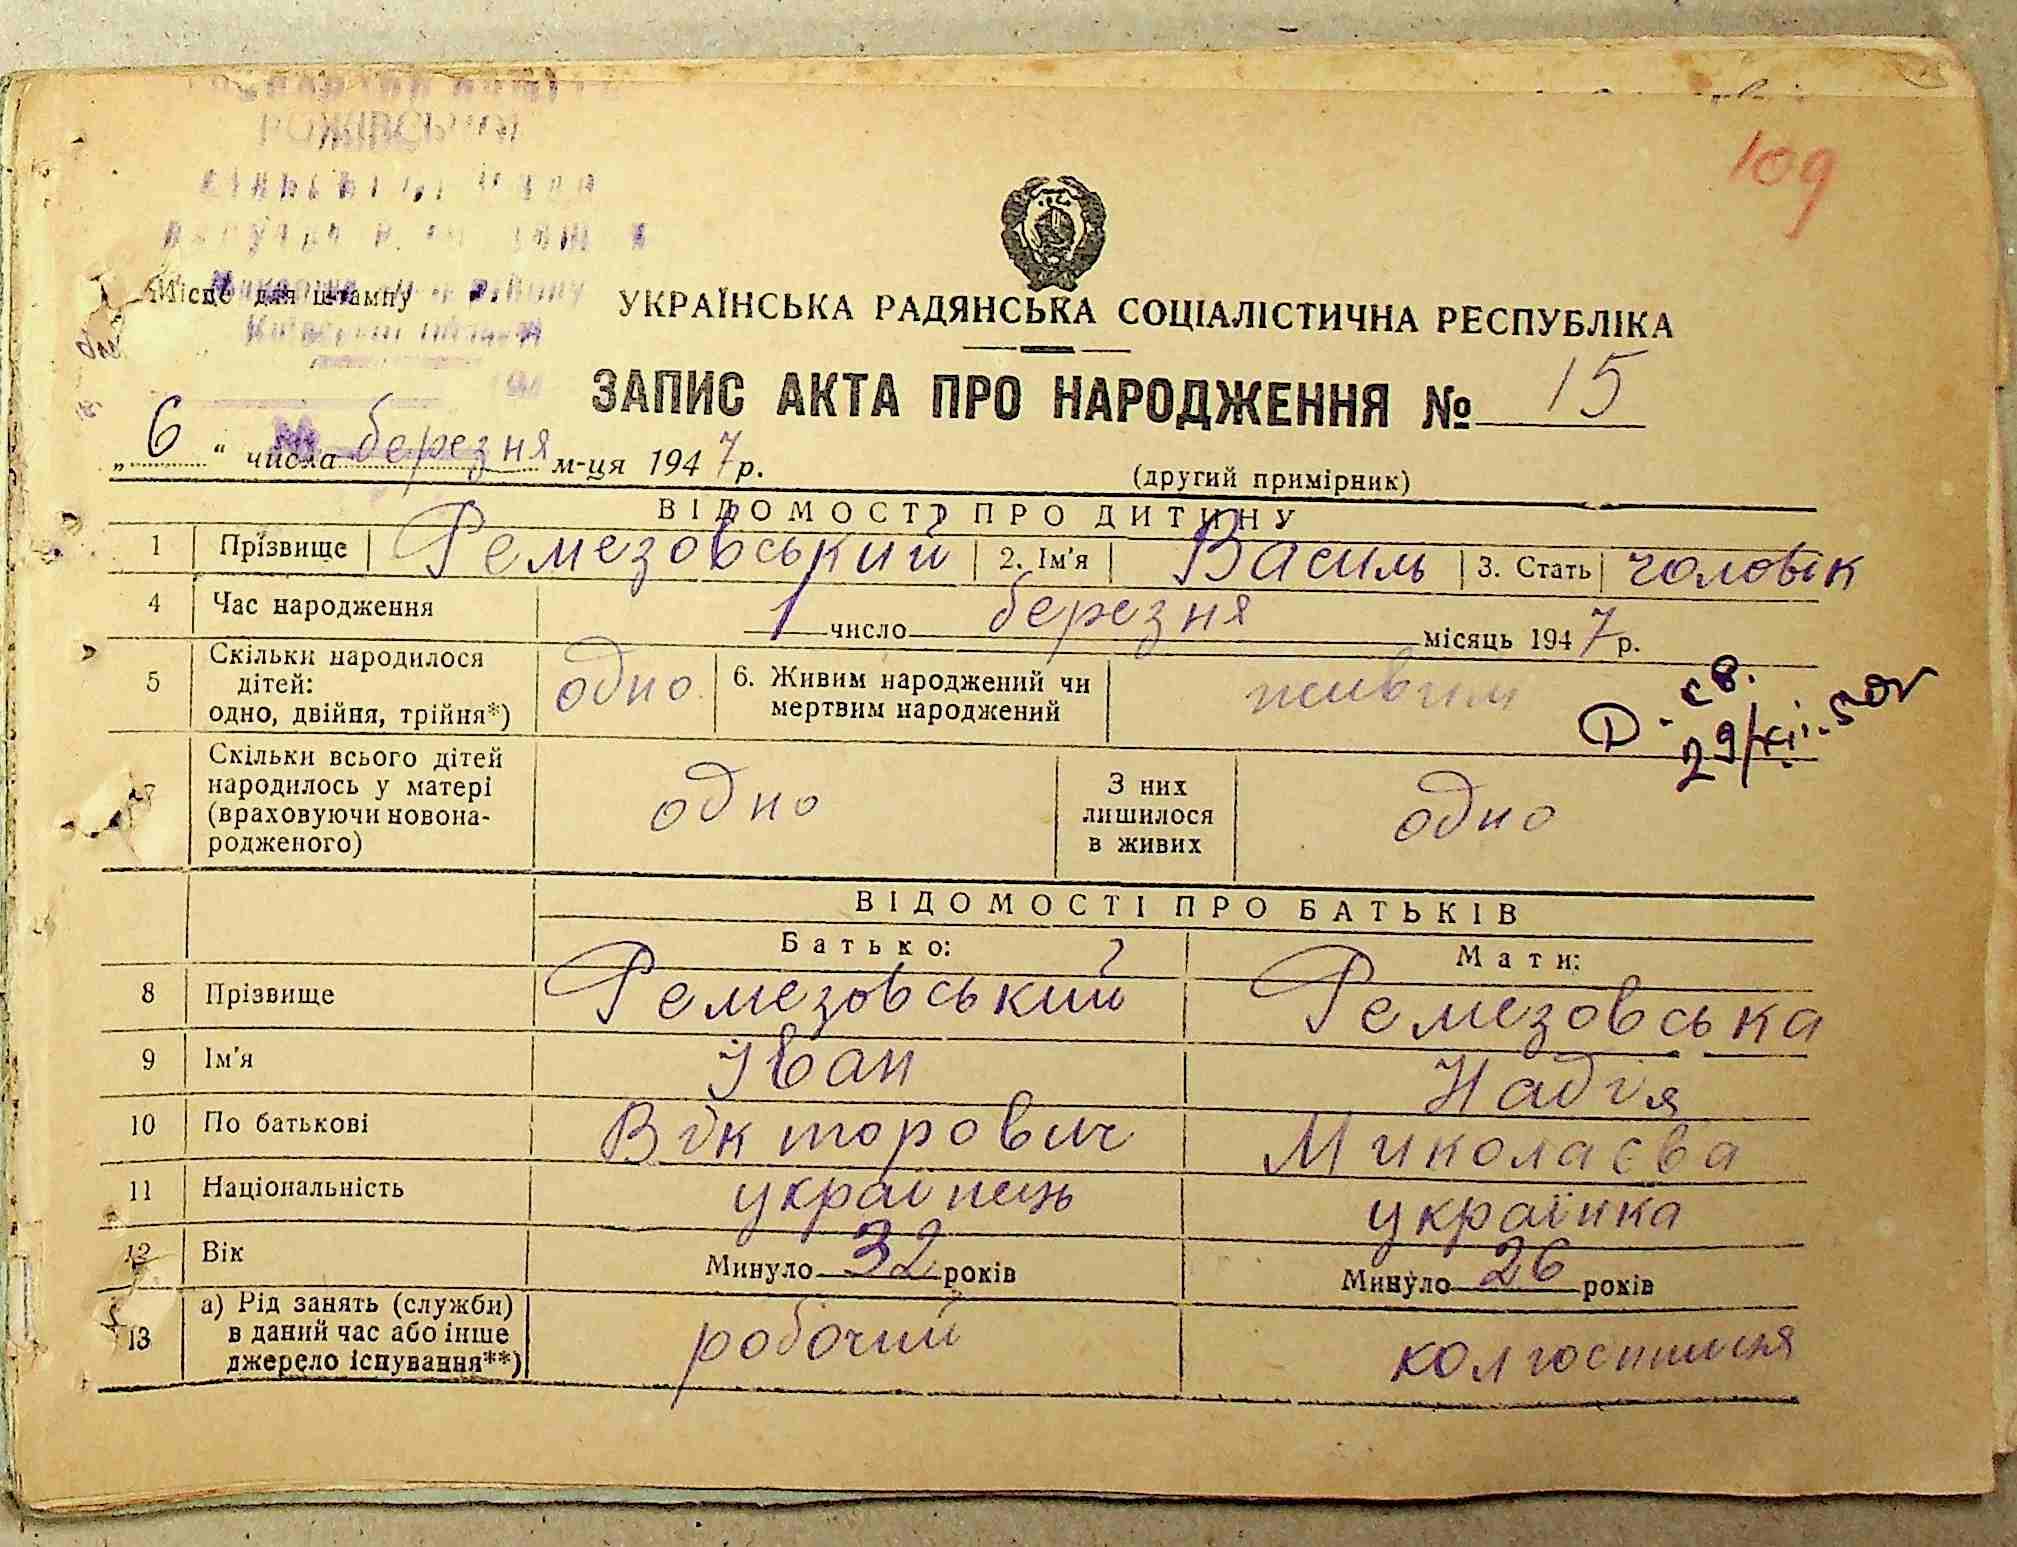 109
Місце для штампу
УКРАЇНСЬКА РАДЯНСЬКА СОЦІАЛІСТИЧНА РЕСПУБЛІКА
ЗАПИС АКТА ПРО НАРОДЖЕННЯ № 15
„6“ числа березня м-ця 1947 р.
(другий примірник)
ВІДОМОСТІ ПРО ДИТИНУ
1 Прізвище Ремезовський 2. Ім'я Василь 3. Стать чоловік
4 Час народження 1 число березня місяць 1947 р.
5 Скільки народилося дітей: одно, двійня, трійня*) одно 6. Живим народжений чи мертвим народжений живим
Скільки всього дітей народилось у матері (враховуючи новона-родженого) одно З них лишилося в живих одно
ВІДОМОСТІ ПРО БАТЬКІВ
Батько: Мати:
8 Прізвище Ремезовський Ремезовська
9 Ім'я Іван Надія
10 По батькові Вікторович Миколаєва
11 Національність українець українка
12 Вік Минуло 32 років Минуло 26 років
13 а) Рід занять (служби) в даний час або інше джерело існування**) робочий колгоспниця